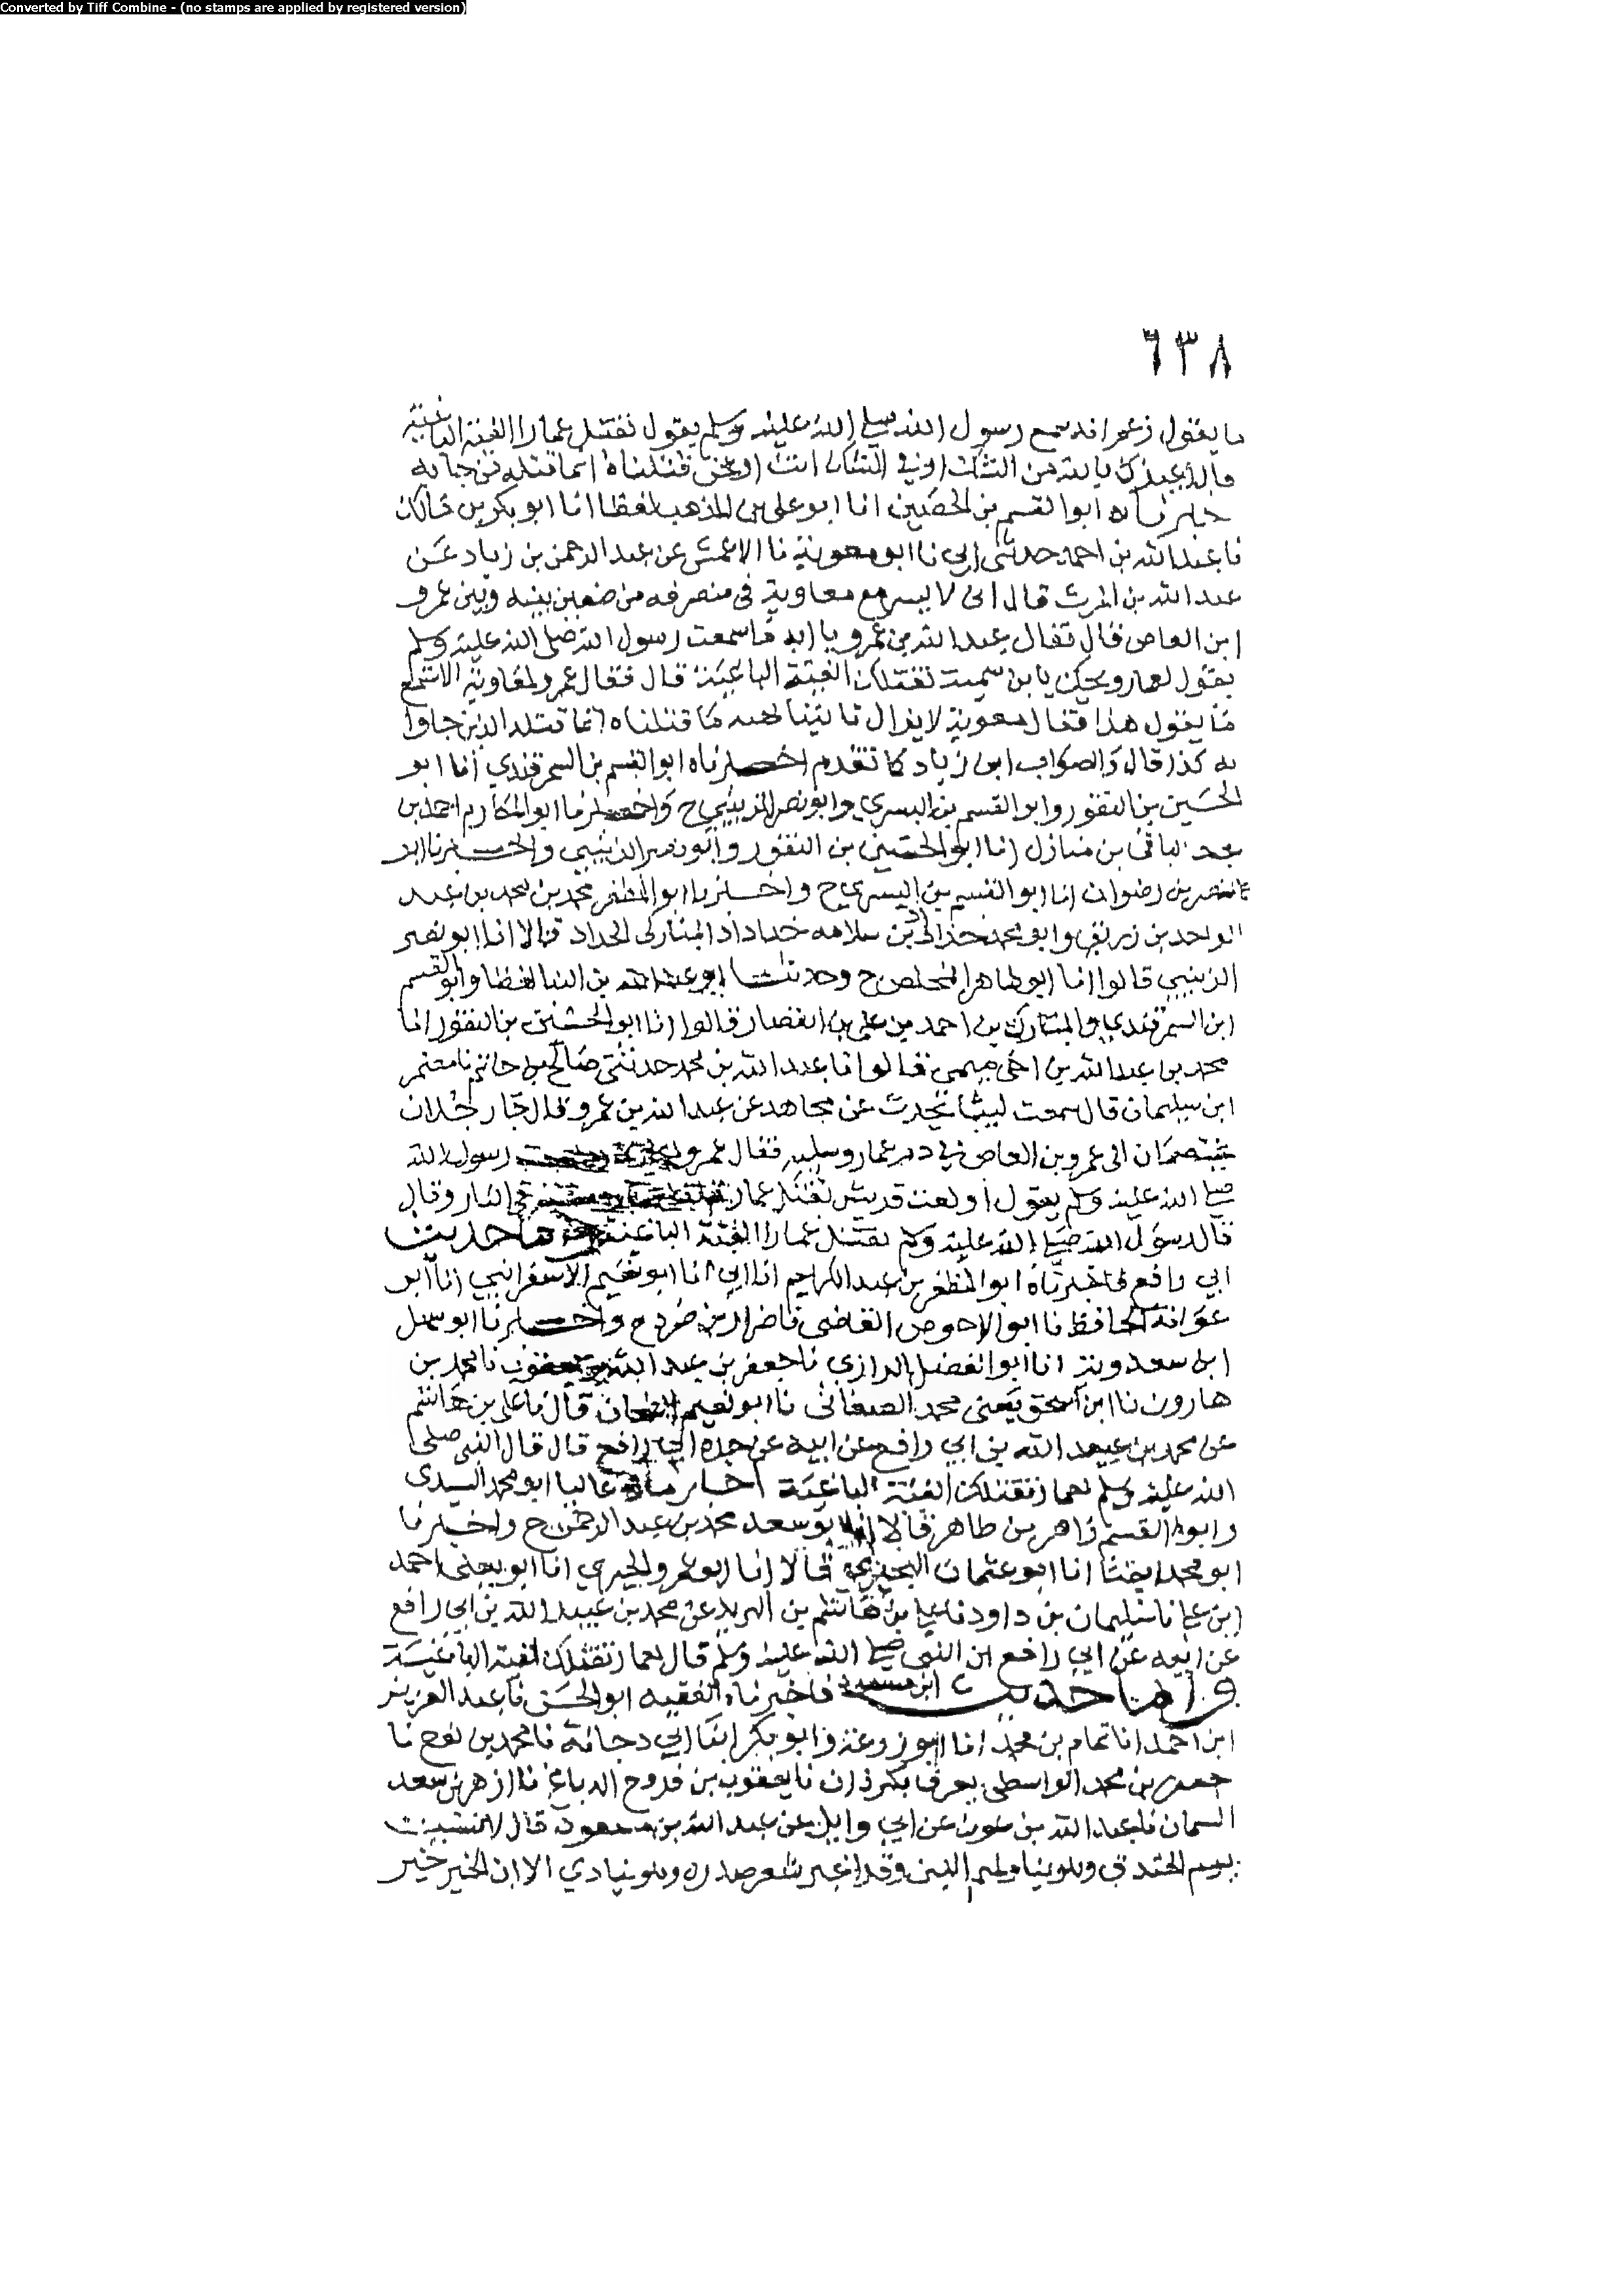 Converted by Tiff Combine - (no stamps are applied by registered version)
٦٣٨
ما يقول زعم انه سمع رسول الله صلى الله عليه وسلم يقول تقتل عمارا الفئة الباغية
قال اعيذك بالله من الشك اوفي الشك انت اونحن قتلناه انما قتله من جا به
اخبرناه ابوا لقسم بن الحصين انا ابو على بن المذهب لفظا انا ابو بكر بن مالك
نا عبد الله بن احمد حدثني ابي نا ابو معوية نا الاعمش عن عبد الرحمن بن زياد عن
عبد الله بن الحرث قال اني لا يسر مع معاوية في منصرفه من صفين بينه وبين عمرو
ابن العاص قال فقال عبد الله بن عمرو يا ابه ما سمعت رسول الله صلى الله عليه وسلم
يقول لعمار ويحك يا بن سمية تقتلك الفئة الباغية قال فقال عمرو لمعاوية الا تسمع
ما يقول هذا فقال معوية لا يزال تا تينا بهنه ما قتلناه انما قتله الذين جاوا
به كذا قال والصواب ابن زياد كما تقدم اخبرناه ابوا لقسم بن السمرقندي انا ابو
الحسين بن النقور وابو القسم بن البسري وابو نصر الزينبي ح واخبرنا ابو المكارم احمد بن
عبد الباقي بن منازل انا ابو الحسين بن النقور وابو نصر الزينبي واخبرنا ابو
نصر بن رضوان انا ابو القسم بن البسري ح واخبرنا ابو المظفر محمد بن محمد بن عبد
الواحد بن زريق وابو محمد بن سلامه خداداد المباركى الحداد قالا انا ابو نصر
الزينبي قالوا انا ابو طاهر المخلص ح وحدثنا ابو عبد الله بن البنا لفظا وابو القسم
ابن السمرقندي والمبارك بن احمد بن على بن القصار قالوا انا ابو الحسين بن النقور انا
محمد بن عبد الله بن اخى ميمى قالوا نا عبد الله بن محمد حدثني صالح بن حاتم نا معتمر
ابن سليمان قال سمعت ليثا يحدث عن مجاهد عن عبد الله بن عمرو قال جا رجلان
يختصمان الى عمرو بن العاص في دم عمار وسلبه فقال عمرو رسول الله
صلى الله عليه وسلم يقول اولعت قريش بقتل عمار في النار وقال
قال رسول الله صلى الله عليه وسلم تقتل عمارا الفئة الباغية واما حديث
ابي رافع فاخبرناه ابوا لمظفر بن عبد الكريم انا ابي انا ابو نعيم الاسفرايني انا ابو
عوانة الحافظ نا ابوا الاحوص القاضي نا ضرار بن صرد ح واخبرنا ابو سهل
ابن سعدويه انا ابوا لفضل الرازي نا جعفر بن عبد الله بن يعقوب نا محمد بن
هارون نا ابن اسحق يعني محمد الصغاني نا ابو نعيم قال نا على بن هاشم
عن محمد بن عبيد الله بن ابي رافع عن ابيه عن جده ابي رافع قال قال النبي صلى
الله عليه وسلم لعمار تقتلك الفئة الباغية اخبرناه عاليا ابو محمد السيدى
وابو القسم زاهر بن طاهر قالا انا ابو سعد محمد بن عبد الرحمن ح واخبرنا
ابو محمد ايضا انا ابو عثمان البحيري قالا انا ابو عمرو الحيري انا ابو يعلى احمد
ابن على نا سليمان بن داود نا على بن هاشم بن البريد عن محمد بن عبيد الله بن ابي رافع
عن ابيه عن ابي رافع ان النبي صلى الله عليه وسلم قال لعمار تقتلك الفئة الباغية
واما حديث ابن مسعود فاخبرناه الفقيه ابو الحسن نا عبد العزيز
ابن احمد انا تمام بن محمد انا ابو زرعة وابو بكر ابنا ابي دجانة نا محمد بن نوح نا
جعفر بن محمد الواسطي يعرف بكرذان نا يعقوب بن فروخ الدباغ نا ازهر بن سعد
السمان نا عبد الله بن عون عن ابي وايل عن عبد الله بن مسعود قال
يوم الخندق وهو يناولهم اللبن وقد اغبر شعر صدره وهو ينادي الا ان الخير خير